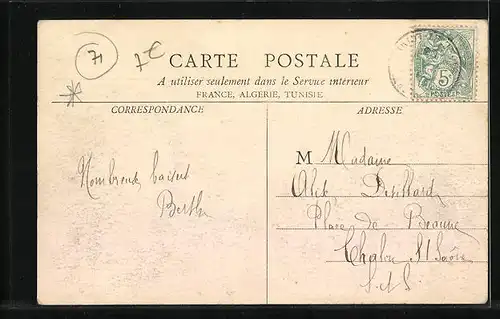 71
7€
CARTE POSTALE
A utiliser seulement dans le Service intérieur
FRANCE, ALGÉRIE, TUNISIE
CORRESPONDANCE
ADRESSE
Nombreux baisers
Berthe
M Madame
Alix
Place de Beaune
Chalon S/ Saône
S. et L.
5